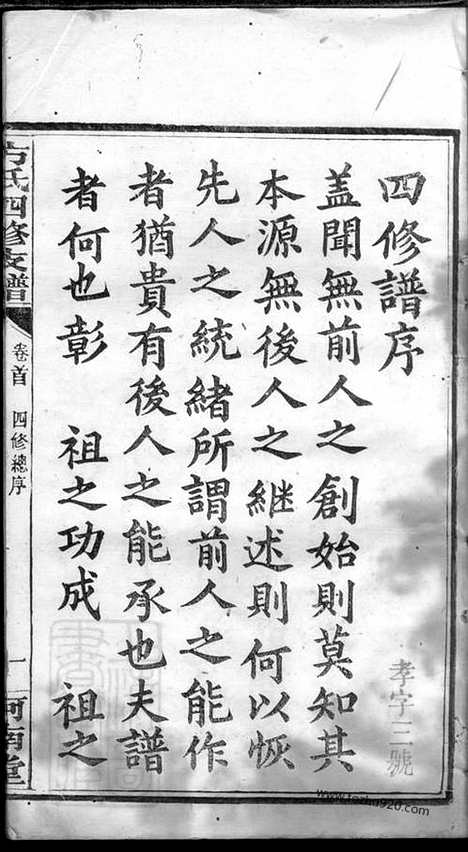 四修譜序
蓋聞無前人之創始則莫知其
本源無後人之継述則何以恢
先人之統緒所謂前人之能作
者猶貴有後人之能承也夫譜
者何也彰 祖之功成 祖之
方氏四修支譜
卷首 四修總序
一
河南堂
孝字三號